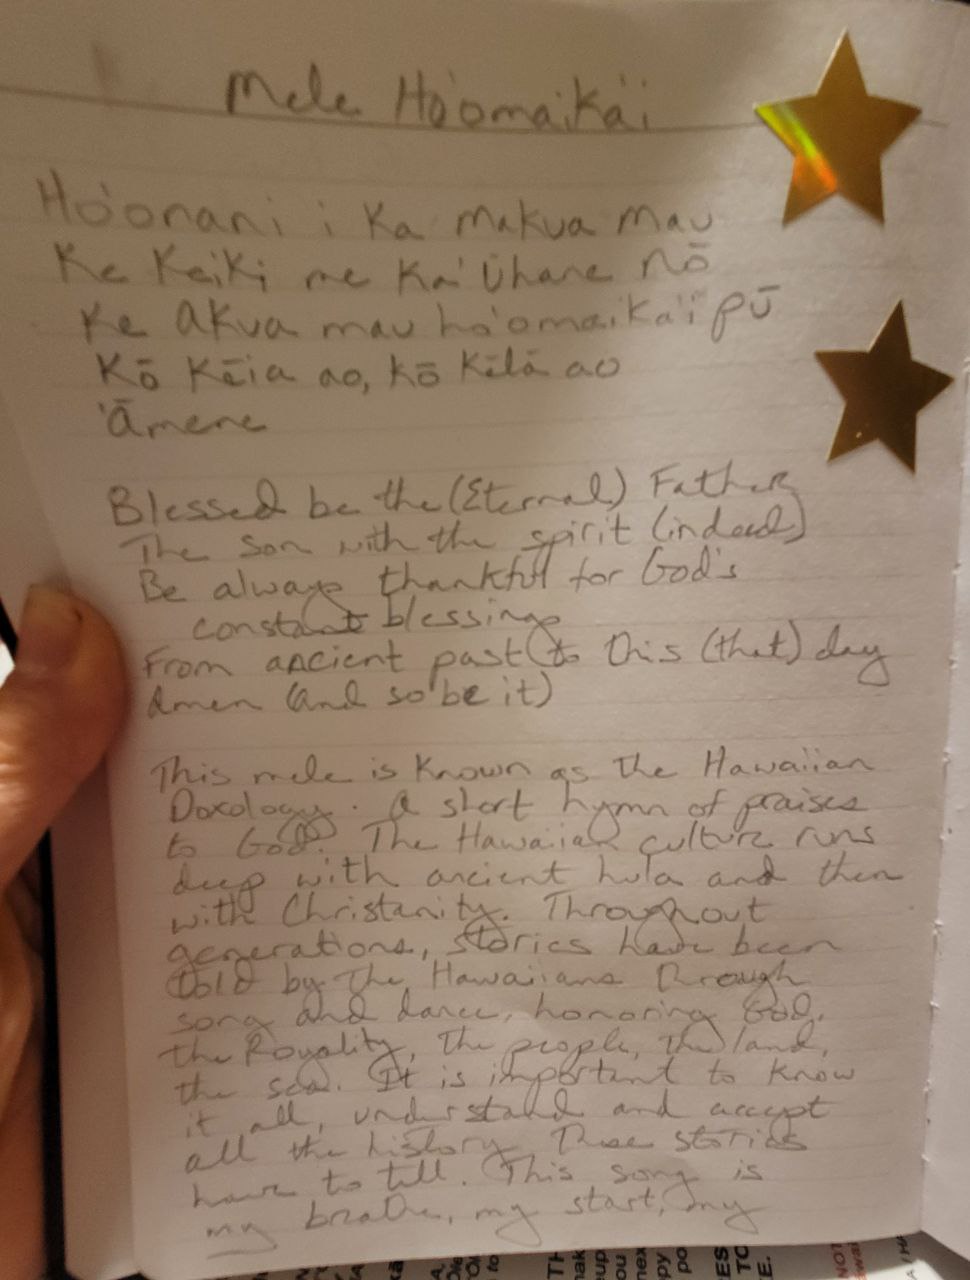 Mele Ho'omaika'i
Ho'onani i Ka Makua Mau
Ke Keiki me Ka 'Uhane Nō
Ke Akua mau ho'omaika'i pū
Kō Kēia ao, kō Kēlā ao
'Āmene
Blessed be the (Eternal) Father
The Son with the spirit (indeed)
Be always thankful for God's
constant blessings
From ancient past to this (that) day
Amen (and so be it)
This mele is Known as the Hawaiian
Doxology. A short hymn of praises
to God. The Hawaiian culture runs
deep with ancient hula and then
with Christanity. Throughout
generations, stories have been
told by the Hawaiians through
song and dance, honoring God,
the Royality, the people, the land,
the sea. It is important to Know
it all, understand and accept
all the history. These stories
have to tell. This song is
my breathe, my start, my